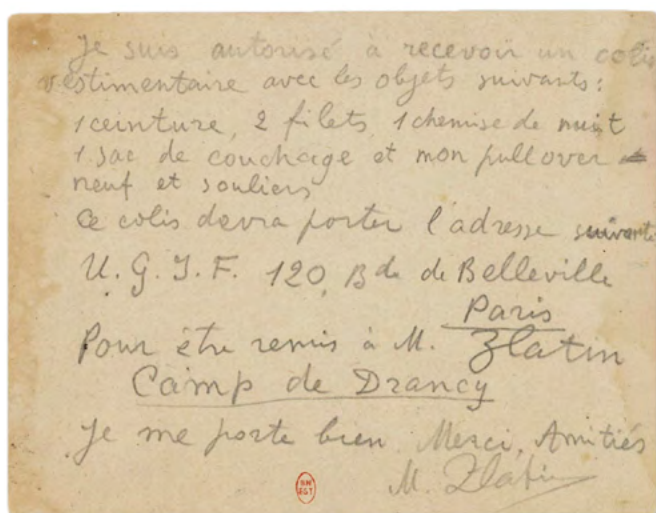 Je suis autorisé à recevoir un colis
vestimentaire avec les objets suivants:
1 ceinture, 2 filets, 1 chemise de nuit
1 sac de couchage et mon pullover
neuf et souliers
Ce colis devra porter l'adresse suivante
U.G.I.F. 120, Bde de Belleville
Paris
Pour être remis à M. Zlatin
Camp de Drancy
Je me porte bien. Merci, Amitiés
M. Zlatin